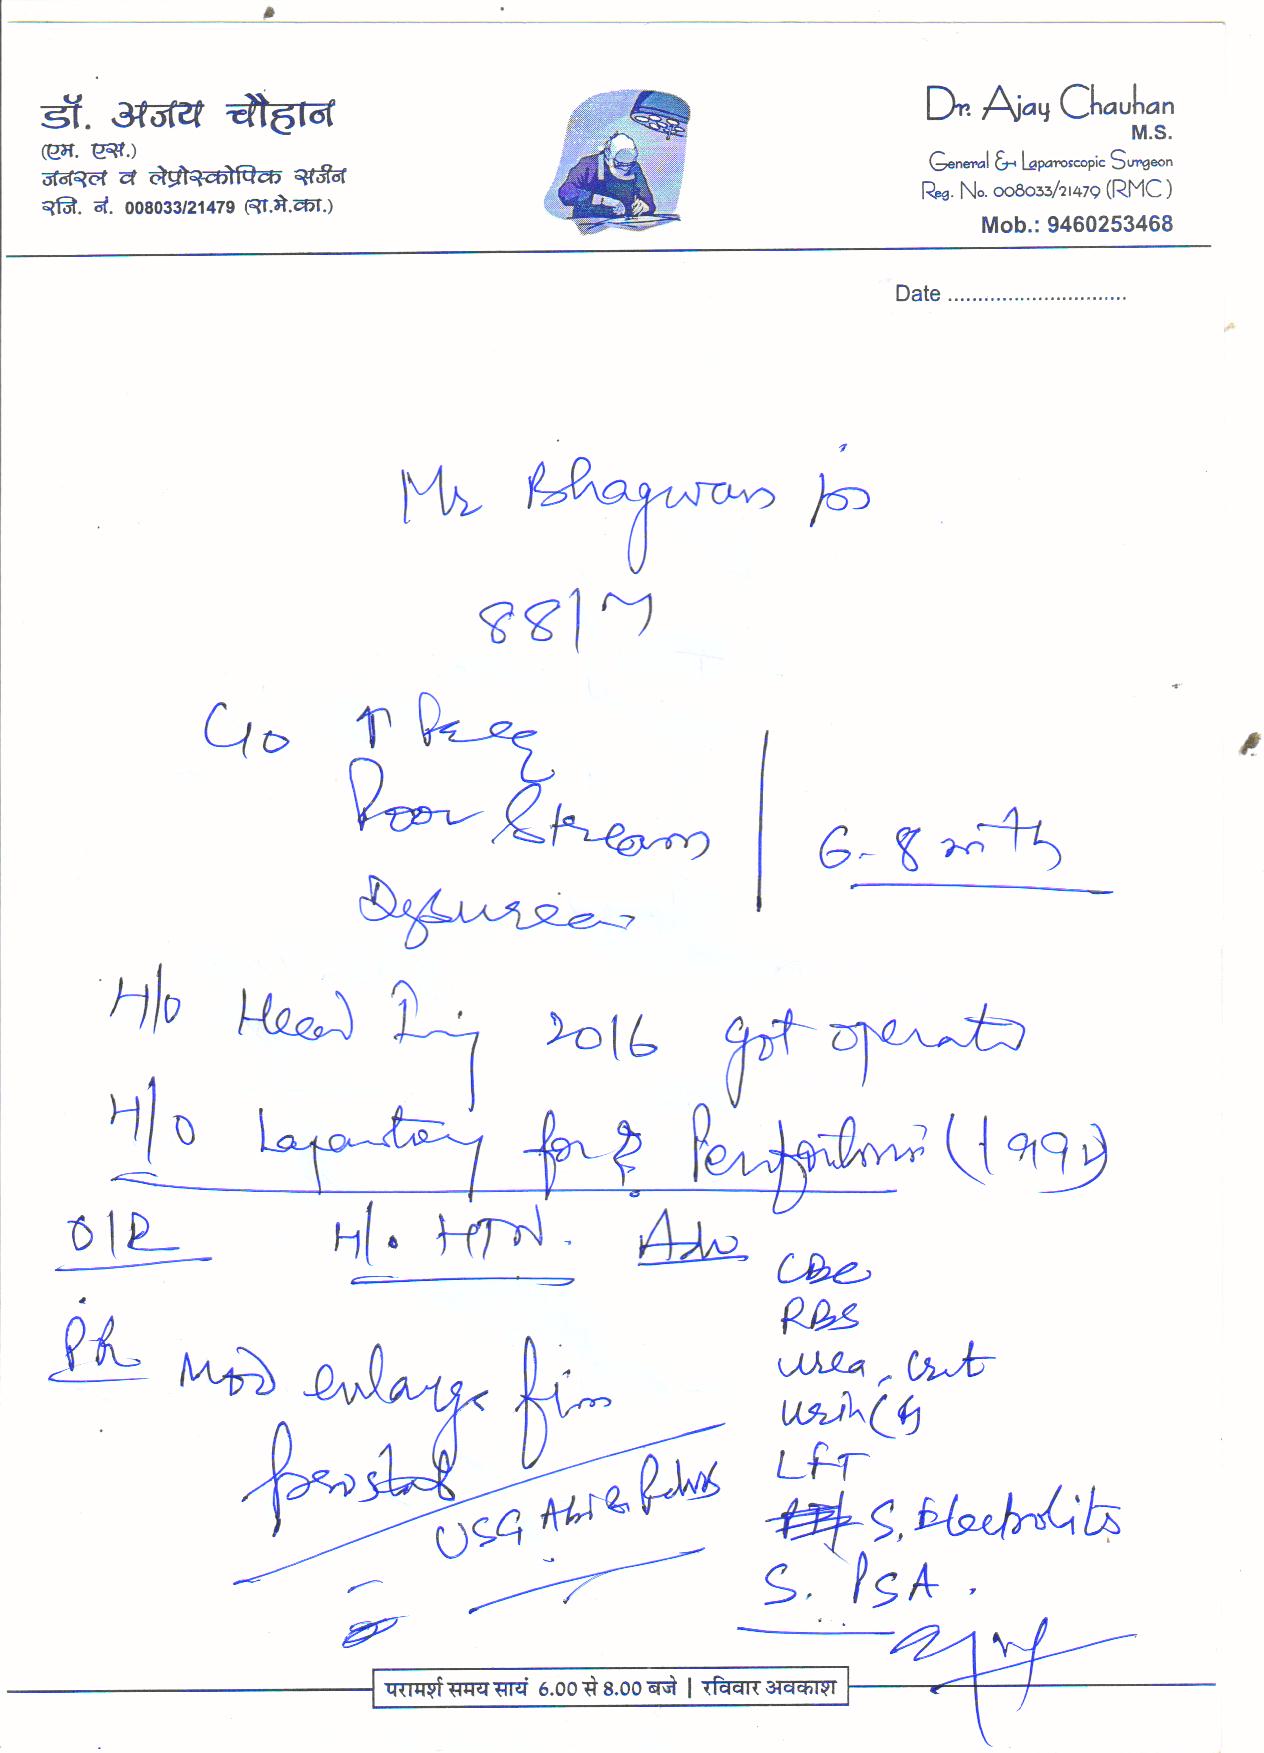 डॉ. अजय चौहान
(एम. एस.)
जनरल व लेप्रोस्कोपिक सर्जन
रजि. नं. 008033/21479 (रा.मे.का.)
Dr. Ajay Chauhan
M.S.
General & Laparoscopic Surgeon
Reg. No. 008033/21479 (RMC)
Mob.: 9460253468
Date ............................
Mr Bhagwan
88/M
C/o ↑ Freq
Poor Stream
Dysurea
6-8 mth
H/O Head Inj 2016 got operat
H/O for Perforation
O/E H/o HTN. Adv
P/R Mod enlarge firm
prostat
USG Abd & Pelvis
CBC
RBS
urea, Crit
Urin
LFT
S. Electrolits
S. PSA.
परामर्श समय सायं 6.00 से 8.00 बजे | रविवार अवकाश